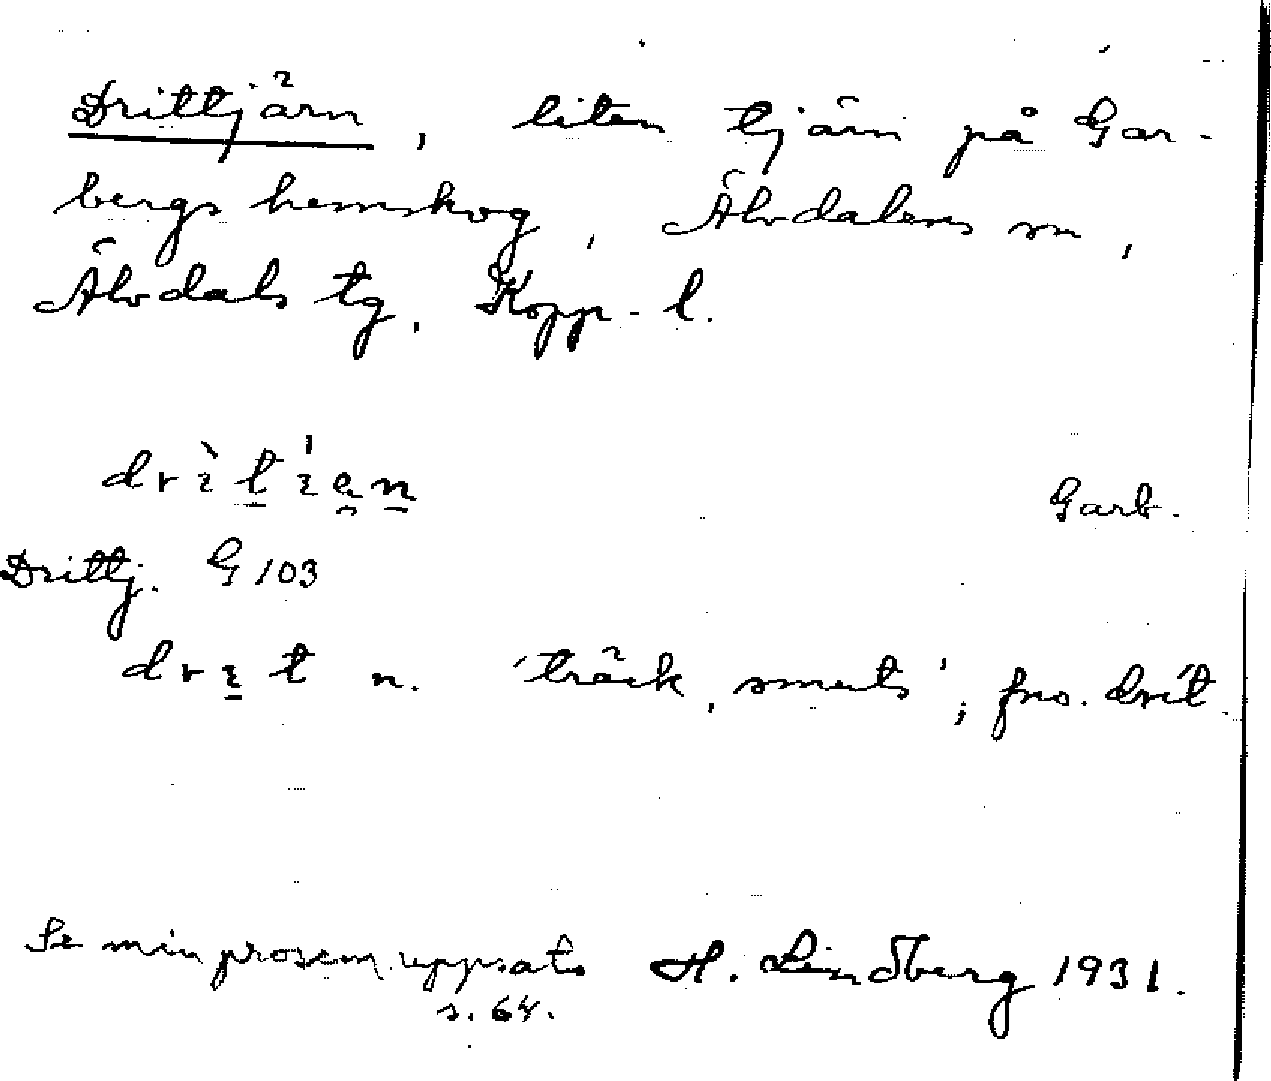 Drittjärn, liten tjärn på Gar-
bergs hemskog, Älvdalens sn,
Älvdals tg, Kopp. l.
Garb.
Drittj. G 103
n. 'träck, smuts'; fno. drít
Se min prosem.uppsats H. Lindberg 1931.
s. 64.